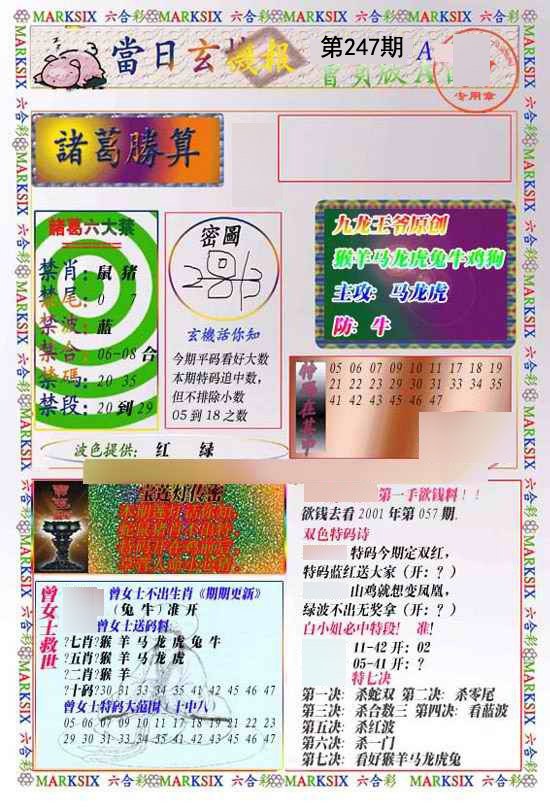 MARKSIX 六合彩 MARKSIX 六合彩 MARKSIX 六合彩 MARKSIX 六合彩 MARKSIX
當日玄機報
第247期 A
专用章
諸葛勝算
諸葛六大禁
禁肖：鼠 猪
禁尾：0 7
禁波：蓝
禁合：06-08 合
禁碼：20 35
禁段：20到29
密圖
玄機話你知
今期平码看好大数
本期特码追中数，
但不排除小数
05 到 18 之数
九龙王爷原创
猴羊马龙虎兔牛鸡狗
主攻：马龙虎
防：牛
05 06 07 09 10 11 17 18 19
21 22 23 29 30 31 33 34 35
41 42 43 45 46 47
波色提供： 红 绿
宝莲灯传密
曾女士救世
曾女士不出生肖《期期更新》
（兔 牛）准 开
曾女士送码料
?七肖?猴 羊 马 龙 虎 兔 牛
?五肖?猴 羊 马 龙 虎
?二肖?猴 羊
?十码?30 31 33 34 35 41 42 45 46 47
曾女士特码大范围（十中八）
05 06 07 09 10 11 17 18 19 21 22 23
29 30 31 33 34 35 41 42 43 45 46 47
第一手欲钱料！！
欲钱去看 2001 年第 057 期.
双色特码诗
特码今期定双红，
特码蓝红送大家（开：？）
山鸡就想变凤凰，
绿波不出无奖拿（开：？）
白小姐必中特段！ 准！
11-42 开：02
05-41 开：？
特七决
第一决：杀蛇双 第二决：杀零尾
第三决：杀合数三 第四决：看蓝波
第五决：杀红波
第六决：杀一门
第七决：看好猴羊马龙虎兔
MARKSIX 六合彩 MARKSIX 六合彩 MARKSIX 六合彩 MARKSIX 六合彩 MARKSIX